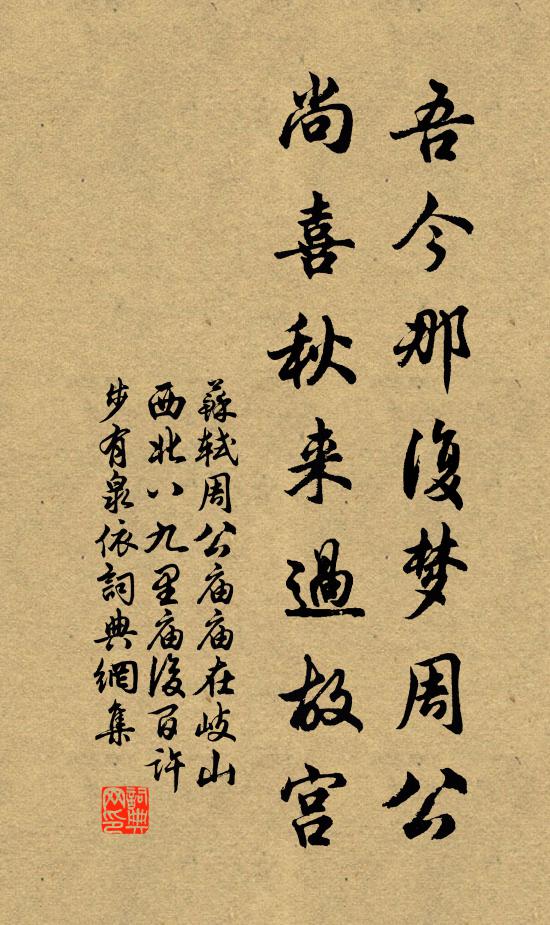 吾今那復梦周公
尚喜秋来過故宫
蘇轼周公庙庙在岐山
西北八九里庙後百许
步有泉依詞典網集
詞典网印